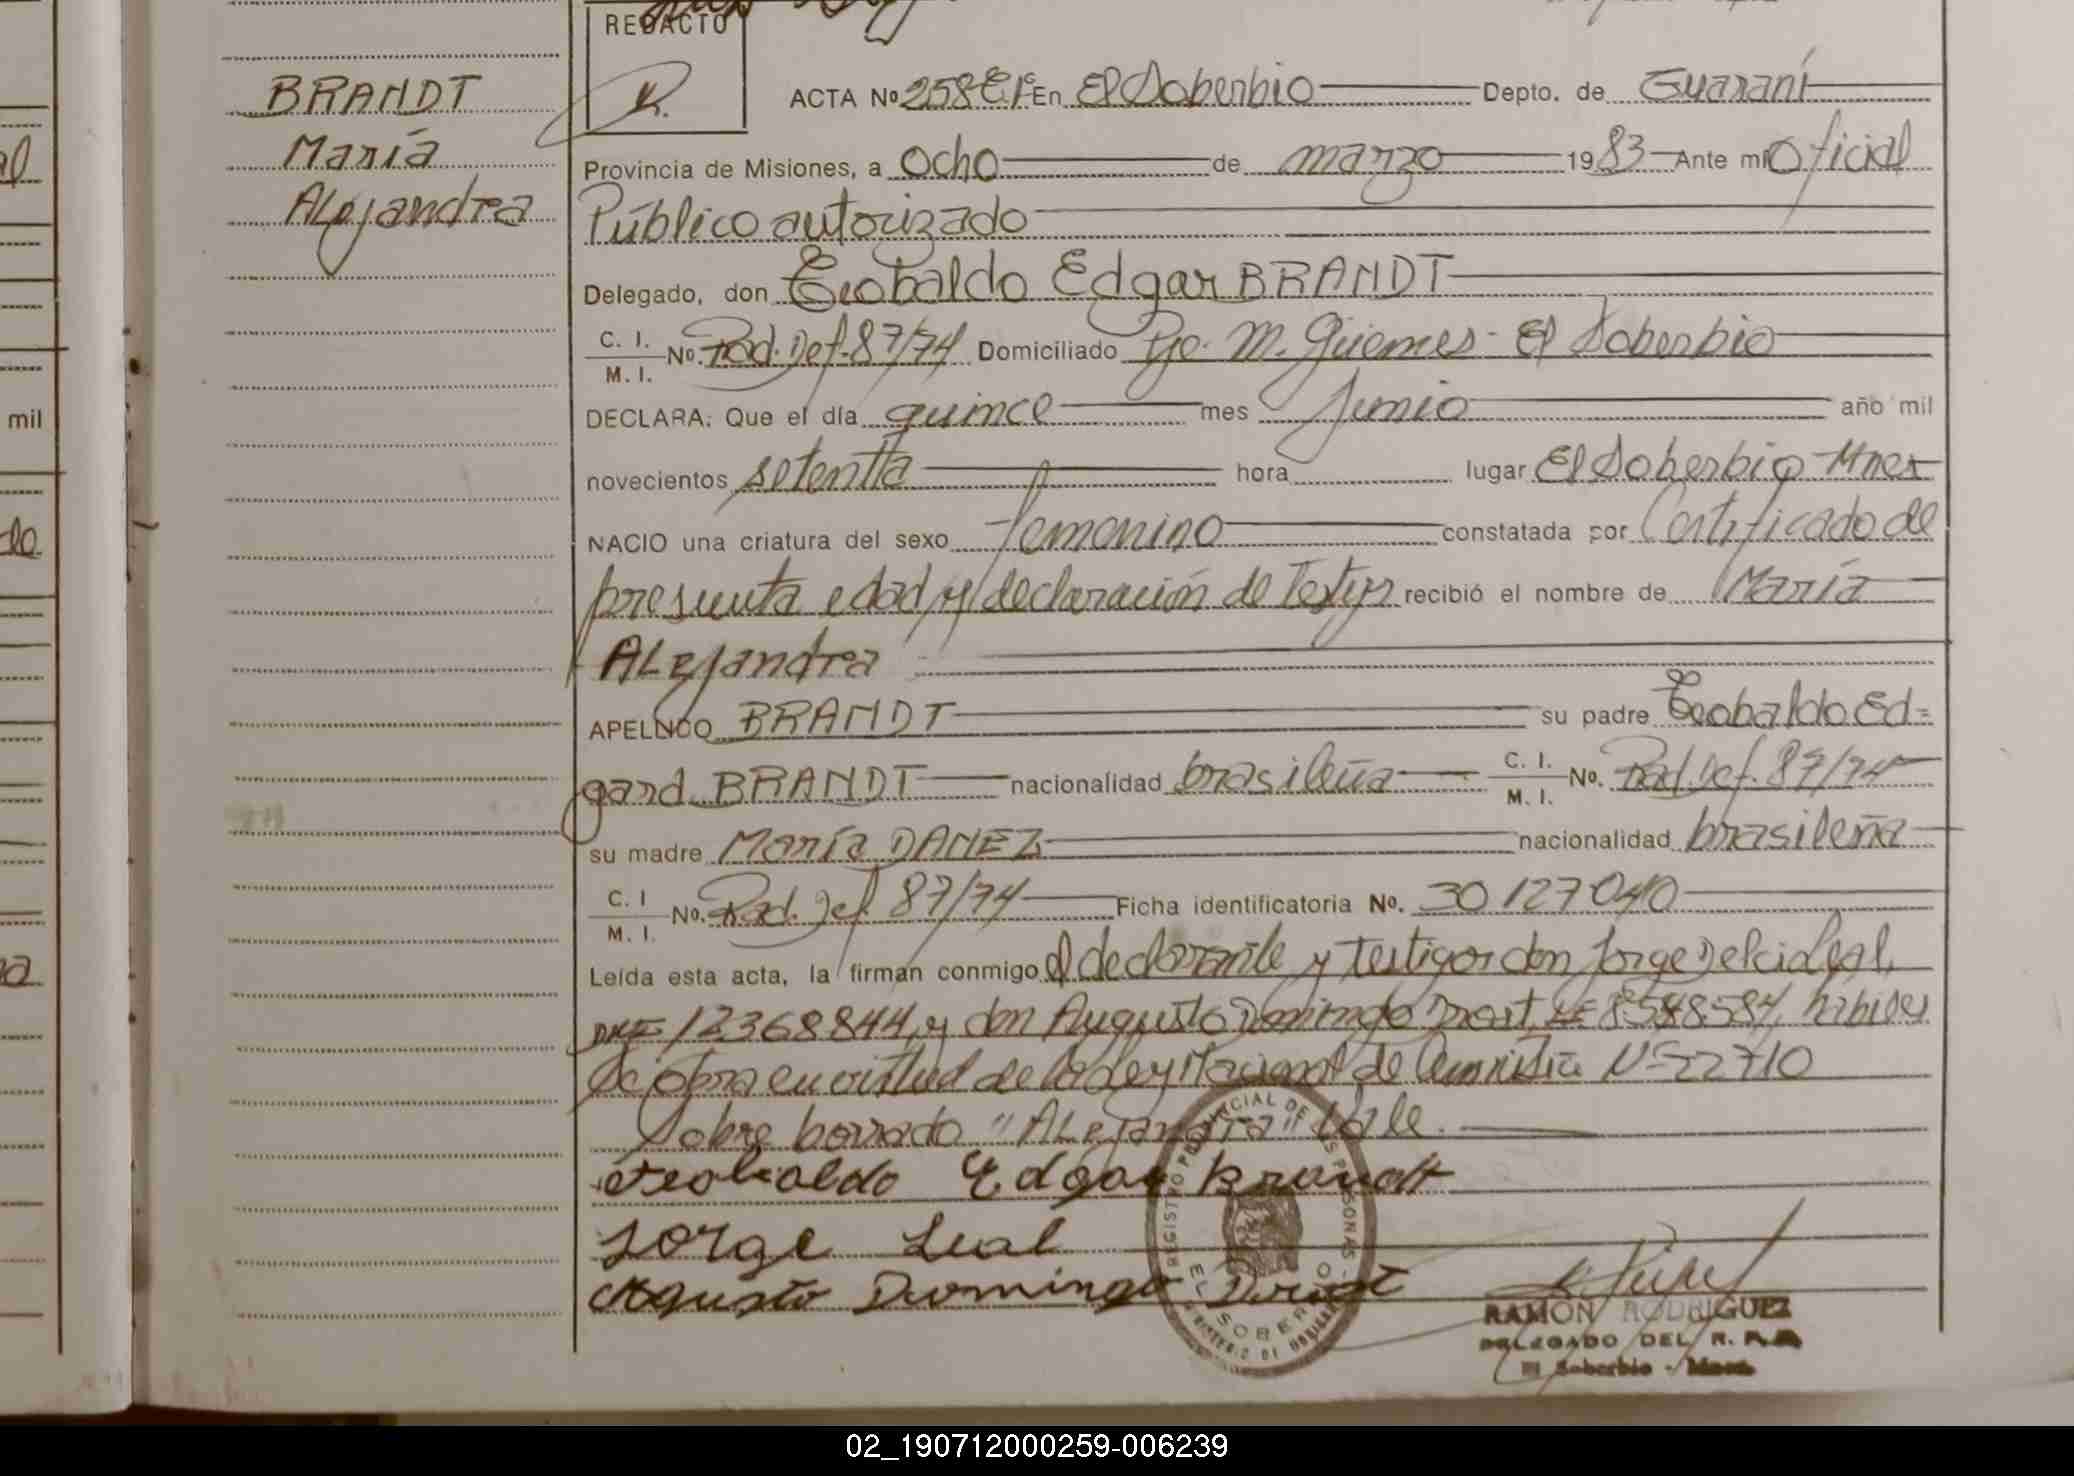 REDACTO
BRANDT
María
ALejandra
ACTA Nº 258 En El Soberbio Depto. de Guaraní
Provincia de Misiones, a Ocho de marzo 1983 Ante mi Oficial
Público autorizado
Delegado, don Teobaldo Edgar BRANDT
C. I. M. I. No. Rad. Def. 87/74 Domiciliado Pje. M. Güemes - El Soberbio
DECLARA: Que el día quince mes Junio año mil
novecientos setenta hora lugar El Soberbio - Mnes
NACIO una criatura del sexo femenino constatada por Certificado de
presunta edad y declaración de Testigs recibió el nombre de María
ALejandra
APELLIDO BRANDT su padre Teobaldo Ed=
gard BRANDT nacionalidad brasileña C. I. M. I. No. Rad. Def. 87/74
su madre María DANEZ nacionalidad brasileña
C. I M. I. No. Rad. Def. 87/74 Ficha identificatoria No. 30127040
Leída esta acta, la firman conmigo el declarante y testigos don Jorge Delci Leal,
12368844, y don Augusto Domingo LE 8588584, hábiles
Se obra en virtud de la Ley Nacional de Amnistía Nº 22710
Sobre borrado "ALejandra" Vale.
Teobaldo Edgar Brandt
Jorge Leal
Agusto Domingo
REGISTRO PROVINCIAL DE LAS PERSONAS
EL SOBERBIO
RAMON RODRIGUEZ
DELEGADO DEL R. P.
El Soberbio - Mnes.
mil
02_190712000259-006239